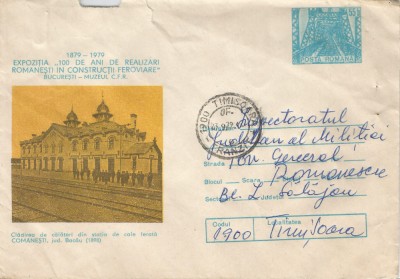 1879 - 1979
EXPOZIȚIA „100 DE ANI DE REALIZĂRI
ROMÂNEȘTI ÎN CONSTRUCȚII FEROVIARE”
BUCUREȘTI - MUZEUL C.F.R.
POSTA ROMANA
1900 TIMIȘOARA
TRANZIT
Inspectoratul
Județean al Militiei
Strada Gen. General
Romonescu
Blocul Scara
Bl. L. Sălăjan
Sectorul Județul
Codul Localitatea
1900 Timișoara
Clădirea de călători din stația de cale ferată
COMĂNEȘTI, jud. Bacău (1899)